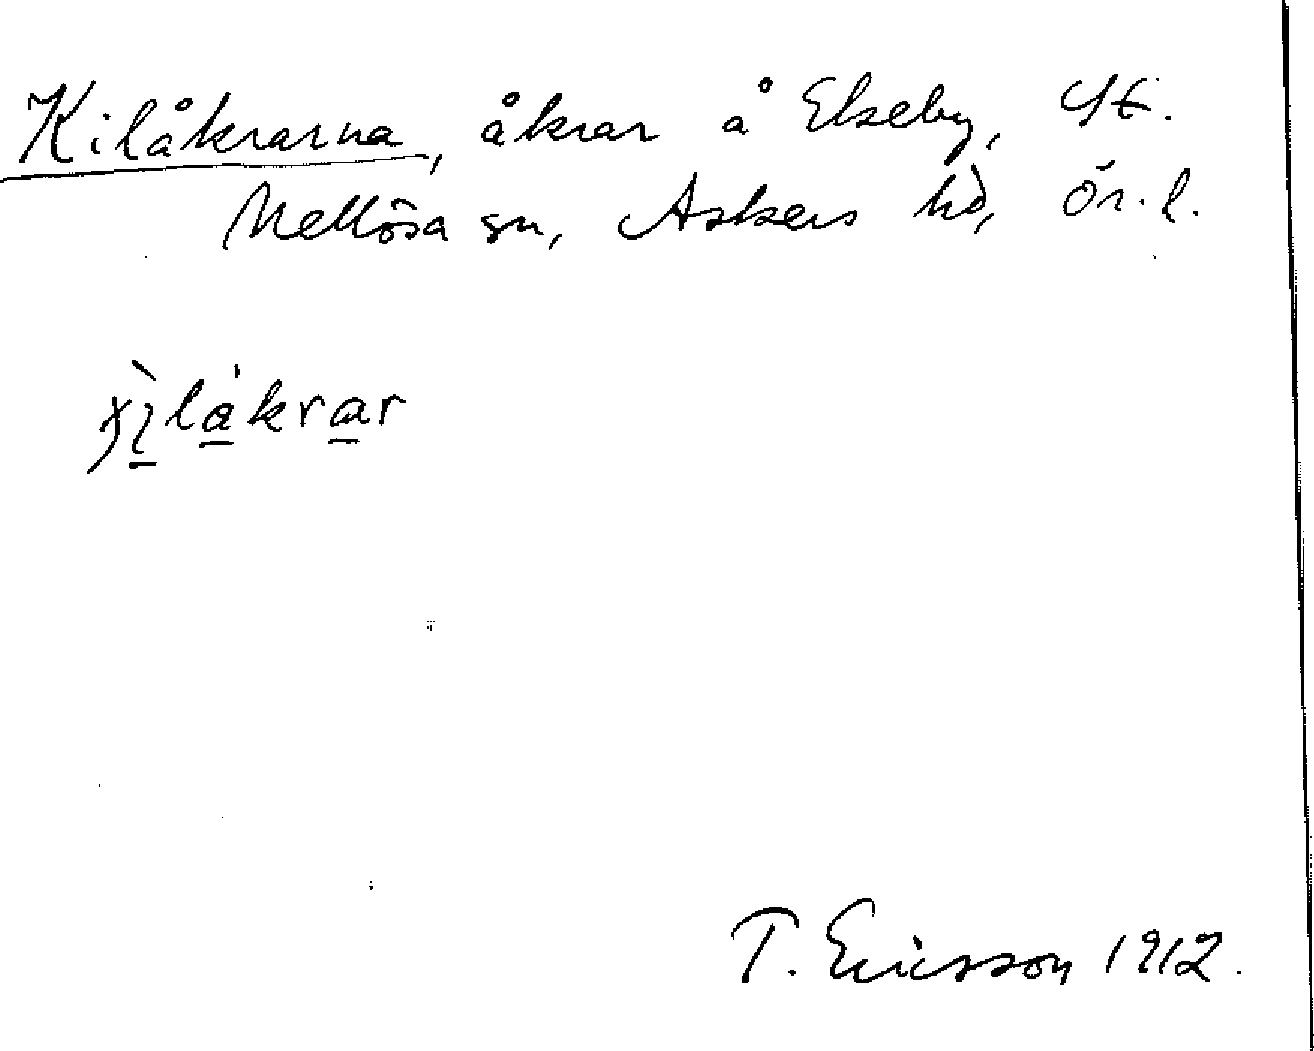 Kilåkrarna, åkrar å Ekeby, St.
Mellösa sn, Askers hd, Ör. l.
låkrar
T. Ericsson 1912.